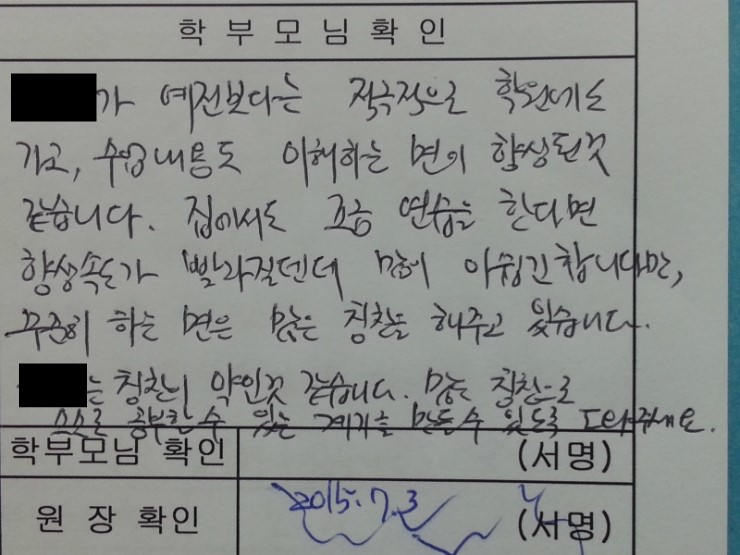 학부모님확인
가 예전보다는 적극적으로 학원에도
가고, 수업내용도 이해하는 면이 향상된것
같습니다. 집에서도 조금 연습을 한다면
향상속도가 빨라질텐데 많이 아쉽긴합니다만,
꾸준히 하는 면은 많은 칭찬을 해주고 있습니다.
는 칭찬이 약인것 같습니다. 많은 칭찬으로
스스로 공부할 수 있는 계기를 만들수 있도록 도와주세요.
학부모님 확인 (서명)
2015.7.3
원 장 확인 (서명)